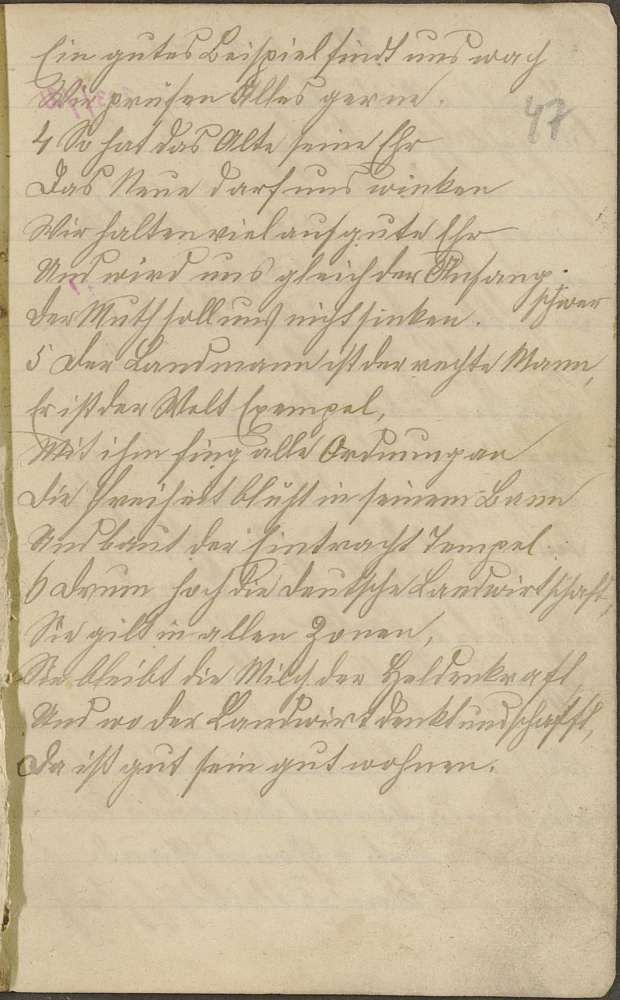 Ein gutes Beispiel findt uns wach
Wir prüfen Alles gerne.
47
4 So hat das Alte seine Ehr
Das Neue darf uns winken
Wir halten viel auf gute Ehr
Und wird uns gleich der Anfang
schwer
Der Muth soll uns nicht sinken.
5 Der Landmann ist der rechte Mann,
Er ist der Welt Exempel,
Mit ihm fing alle Ordnung an
Die Freiheit blüht in seinem Bann
Und baut der Eintracht Tempel.
6 Drum hoch die deutsche Landwirtschaft,
Sie gilt in allen Zonen,
Sie bleibt die Milch der Heldenkraft,
Und wo der Landwirt denkt und schafft,
Da ist gut sein gut wohnen.